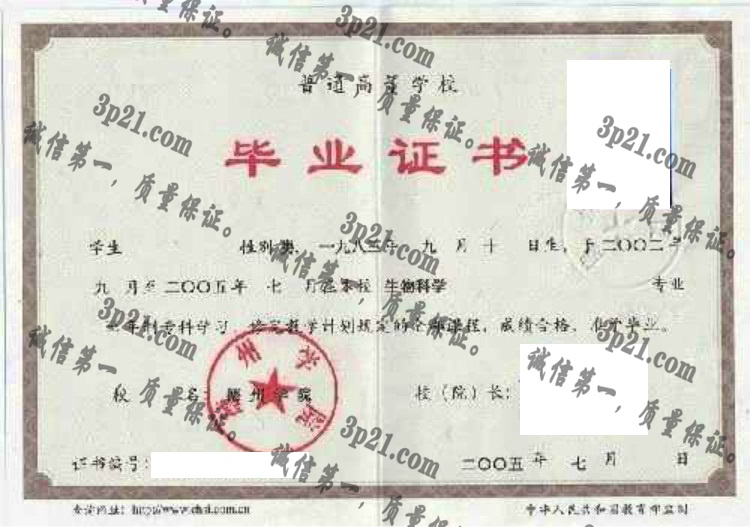 普通高等学校
毕业证书
学生 性别男，一九八三年 九 月 十 日生，于二〇〇二年
九 月至二〇〇五年 七 月在本校 生物科学 专业
三年制专科学习，修完教学计划规定的全部课程，成绩合格，准予毕业。
校 名： 州学院
校（院）长：
证书编号：
二〇〇五年 七 月 日
查询网址：http://www.chsi.com.cn
中华人民共和国教育部监制
3p21.com
诚信第一，质量保证。
3p21.com
诚信第一，质量保证。
3p21.com
诚信第一，质量保证。
3p21.com
诚信第一，质量保证。
3p21.com
诚信第一，质量保证。
3p21.com
诚信第一，质量保证。
3p21.com
诚信第一，质量保证。
3p21.com
质量保证。